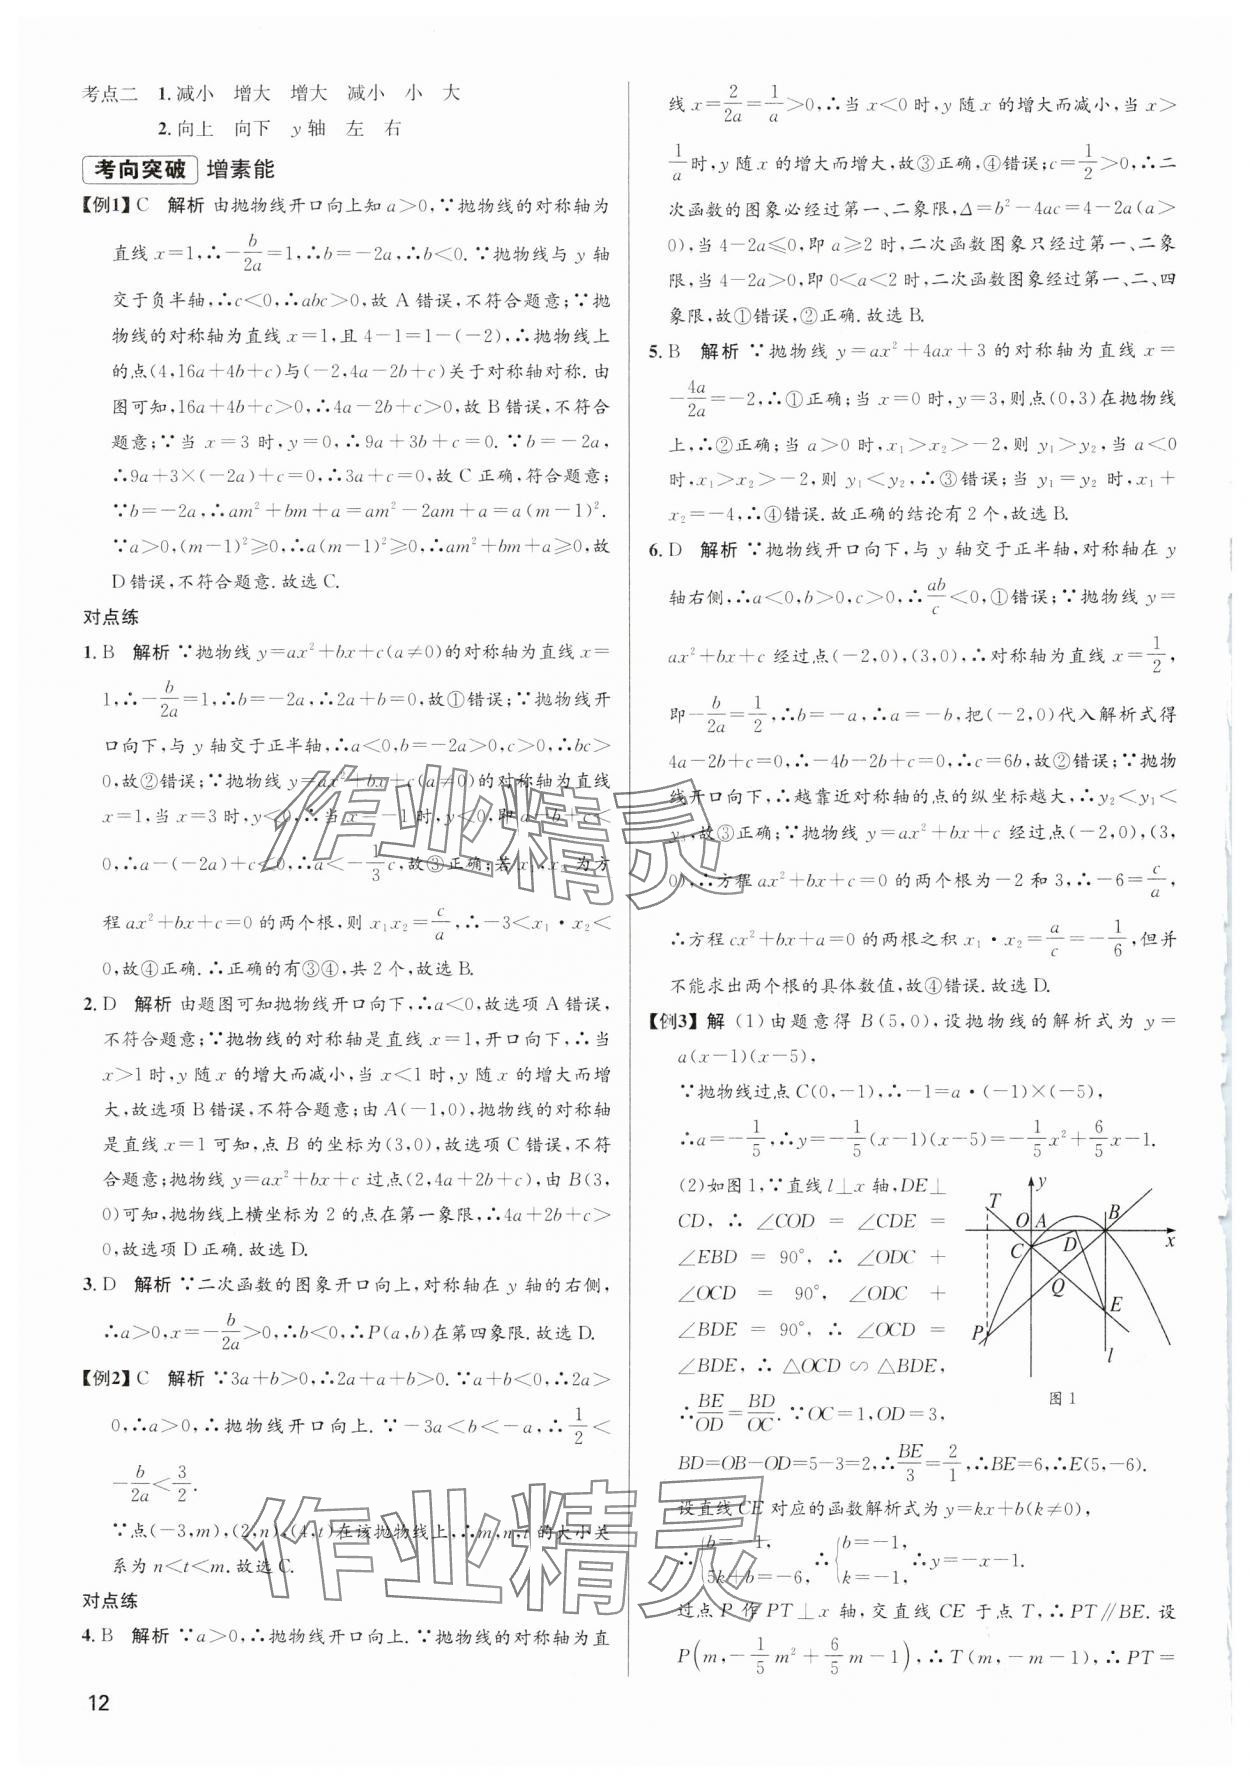 考点二 1.减小 增大 增大 减小 小 大
2.向上 向下 y轴 左 右
考向突破 增素能
【例1】C 解析 由抛物线开口向上知a>0,∵抛物线的对称轴为
直线x=1,∴-b/2a=1,∴b=-2a,∴b<0.∵抛物线与y轴
交于负半轴,∴c<0,∴abc>0,故A错误,不符合题意;∵抛
物线的对称轴为直线x=1,且4-1=1-(-2),∴抛物线上
的点(4,16a+4b+c)与(-2,4a-2b+c)关于对称轴对称.由
图可知,16a+4b+c>0,∴4a-2b+c>0,故B错误,不符合
题意;∵当x=3时,y=0,∴9a+3b+c=0.∵b=-2a,
∴9a+3×(-2a)+c=0,∴3a+c=0,故C正确,符合题意;
∵b=-2a,∴am²+bm+a=am²-2am+a=a(m-1)².
∵a>0,(m-1)²≥0,∴a(m-1)²≥0,∴am²+bm+a≥0,故
D错误,不符合题意.故选C.
对点练
1.B 解析 ∵抛物线y=ax²+bx+c(a≠0)的对称轴为直线x=
1,∴-b/2a=1,∴b=-2a,∴2a+b=0,故①错误;∵抛物线开
口向下,与y轴交于正半轴,∴a<0,b=-2a>0,c>0,∴bc>
0,故②错误;∵抛物线y=ax²+bx+c(a≠0)的对称轴为直线
x=1,当x=3时,y<0,∴当x=-1时,y<0,即a-b+c<
0,∴a-(-2a)+c<0,∴a<-1/3c,故③正确;若x₁,x₂为方
程ax²+bx+c=0的两个根,则x₁x₂=c/a,∴-3<x₁·x₂<
0,故④正确.∴正确的有③④,共2个,故选B.
2.D 解析 由题图可知抛物线开口向下,∴a<0,故选项A错误,
不符合题意;∵抛物线的对称轴是直线x=1,开口向下,∴当
x>1时,y随x的增大而减小,当x<1时,y随x的增大而增
大,故选项B错误,不符合题意;由A(-1,0),抛物线的对称轴
是直线x=1可知,点B的坐标为(3,0),故选项C错误,不符
合题意;抛物线y=ax²+bx+c过点(2,4a+2b+c),由B(3,
0)可知,抛物线上横坐标为2的点在第一象限,∴4a+2b+c>
0,故选项D正确.故选D.
3.D 解析 ∵二次函数的图象开口向上,对称轴在y轴的右侧,
∴a>0,x=-b/2a>0,∴b<0,∴P(a,b)在第四象限.故选D.
【例2】C 解析 ∵3a+b>0,∴2a+a+b>0.∵a+b<0,∴2a>
0,∴a>0,∴抛物线开口向上.∵-3a<b<-a,∴1/2<
-b/2a<3/2.
∵点(-3,m),(2,n),(4,t)在该抛物线上,∴m,n,t的大小关
系为n<t<m.故选C.
对点练
4.B 解析 ∵a>0,∴抛物线开口向上.∵抛物线的对称轴为直
线x=2/2a=1/a>0,∴当x<0时,y随x的增大而减小,当x>
1/a时,y随x的增大而增大,故③正确,④错误;∵c=1/2>0,∴二
次函数的图象必经过第一、二象限,Δ=b²-4ac=4-2a(a>
0),当4-2a≤0,即a≥2时,二次函数图象只经过第一、二象
限,当4-2a>0,即0<a<2时,二次函数图象经过第一、二、四
象限,故①错误,②正确.故选B.
5.B 解析 ∵抛物线y=ax²+4ax+3的对称轴为直线x=
-4a/2a=-2,∴①正确;当x=0时,y=3,则点(0,3)在抛物线
上,∴②正确;当a>0时,x₁>x₂>-2,则y₁>y₂;当a<0
时,x₁>x₂>-2,则y₁<y₂,∴③错误;当y₁=y₂时,x₁+
x₂=-4,∴④错误.故正确的结论有2个,故选B.
6.D 解析 ∵抛物线开口向下,与y轴交于正半轴,对称轴在y
轴右侧,∴a<0,b>0,c>0,∴ab/c<0,①错误;∵抛物线y=
ax²+bx+c经过点(-2,0),(3,0),∴对称轴为直线x=1/2,
即-b/2a=1/2,∴b=-a,∴a=-b,把(-2,0)代入解析式得
4a-2b+c=0,∴-4b-2b+c=0,∴c=6b,故②正确;∵抛物
线开口向下,∴越靠近对称轴的点的纵坐标越大,∴y₂<y₁<
y₃,故③正确;∵抛物线y=ax²+bx+c经过点(-2,0),(3,
0),∴方程ax²+bx+c=0的两个根为-2和3,∴-6=c/a,
∴方程cx²+bx+a=0的两根之积x₁·x₂=a/c=-1/6,但并
不能求出两个根的具体数值,故④错误.故选D.
【例3】解 (1)由题意得B(5,0),设抛物线的解析式为y=
a(x-1)(x-5),
∵抛物线过点C(0,-1),∴-1=a·(-1)×(-5),
∴a=-1/5,∴y=-1/5(x-1)(x-5)=-1/5x²+6/5x-1.
(2)如图1,∵直线l⊥x轴,DE⊥
CD,∴∠COD=∠CDE=
∠EBD=90°,∴∠ODC+
∠OCD=90°,∠ODC+
∠BDE=90°,∴∠OCD=
∠BDE,∴△OCD∽△BDE,
∴BE/OD=BD/OC.∵OC=1,OD=3,
T y O A B D x C Q E P l
图1
BD=OB-OD=5-3=2,∴BE/3=2/1,∴BE=6,∴E(5,-6).
设直线CE对应的函数解析式为y=kx+b(k≠0),
∴{b=-1, 5k+b=-6, ∴{b=-1, k=-1, ∴y=-x-1.
过点P作PT⊥x轴,交直线CE于点T,∴PT∥BE.设
P(m,-1/5m²+6/5m-1),∴T(m,-m-1),∴PT=
12
作业精灵
作业精灵